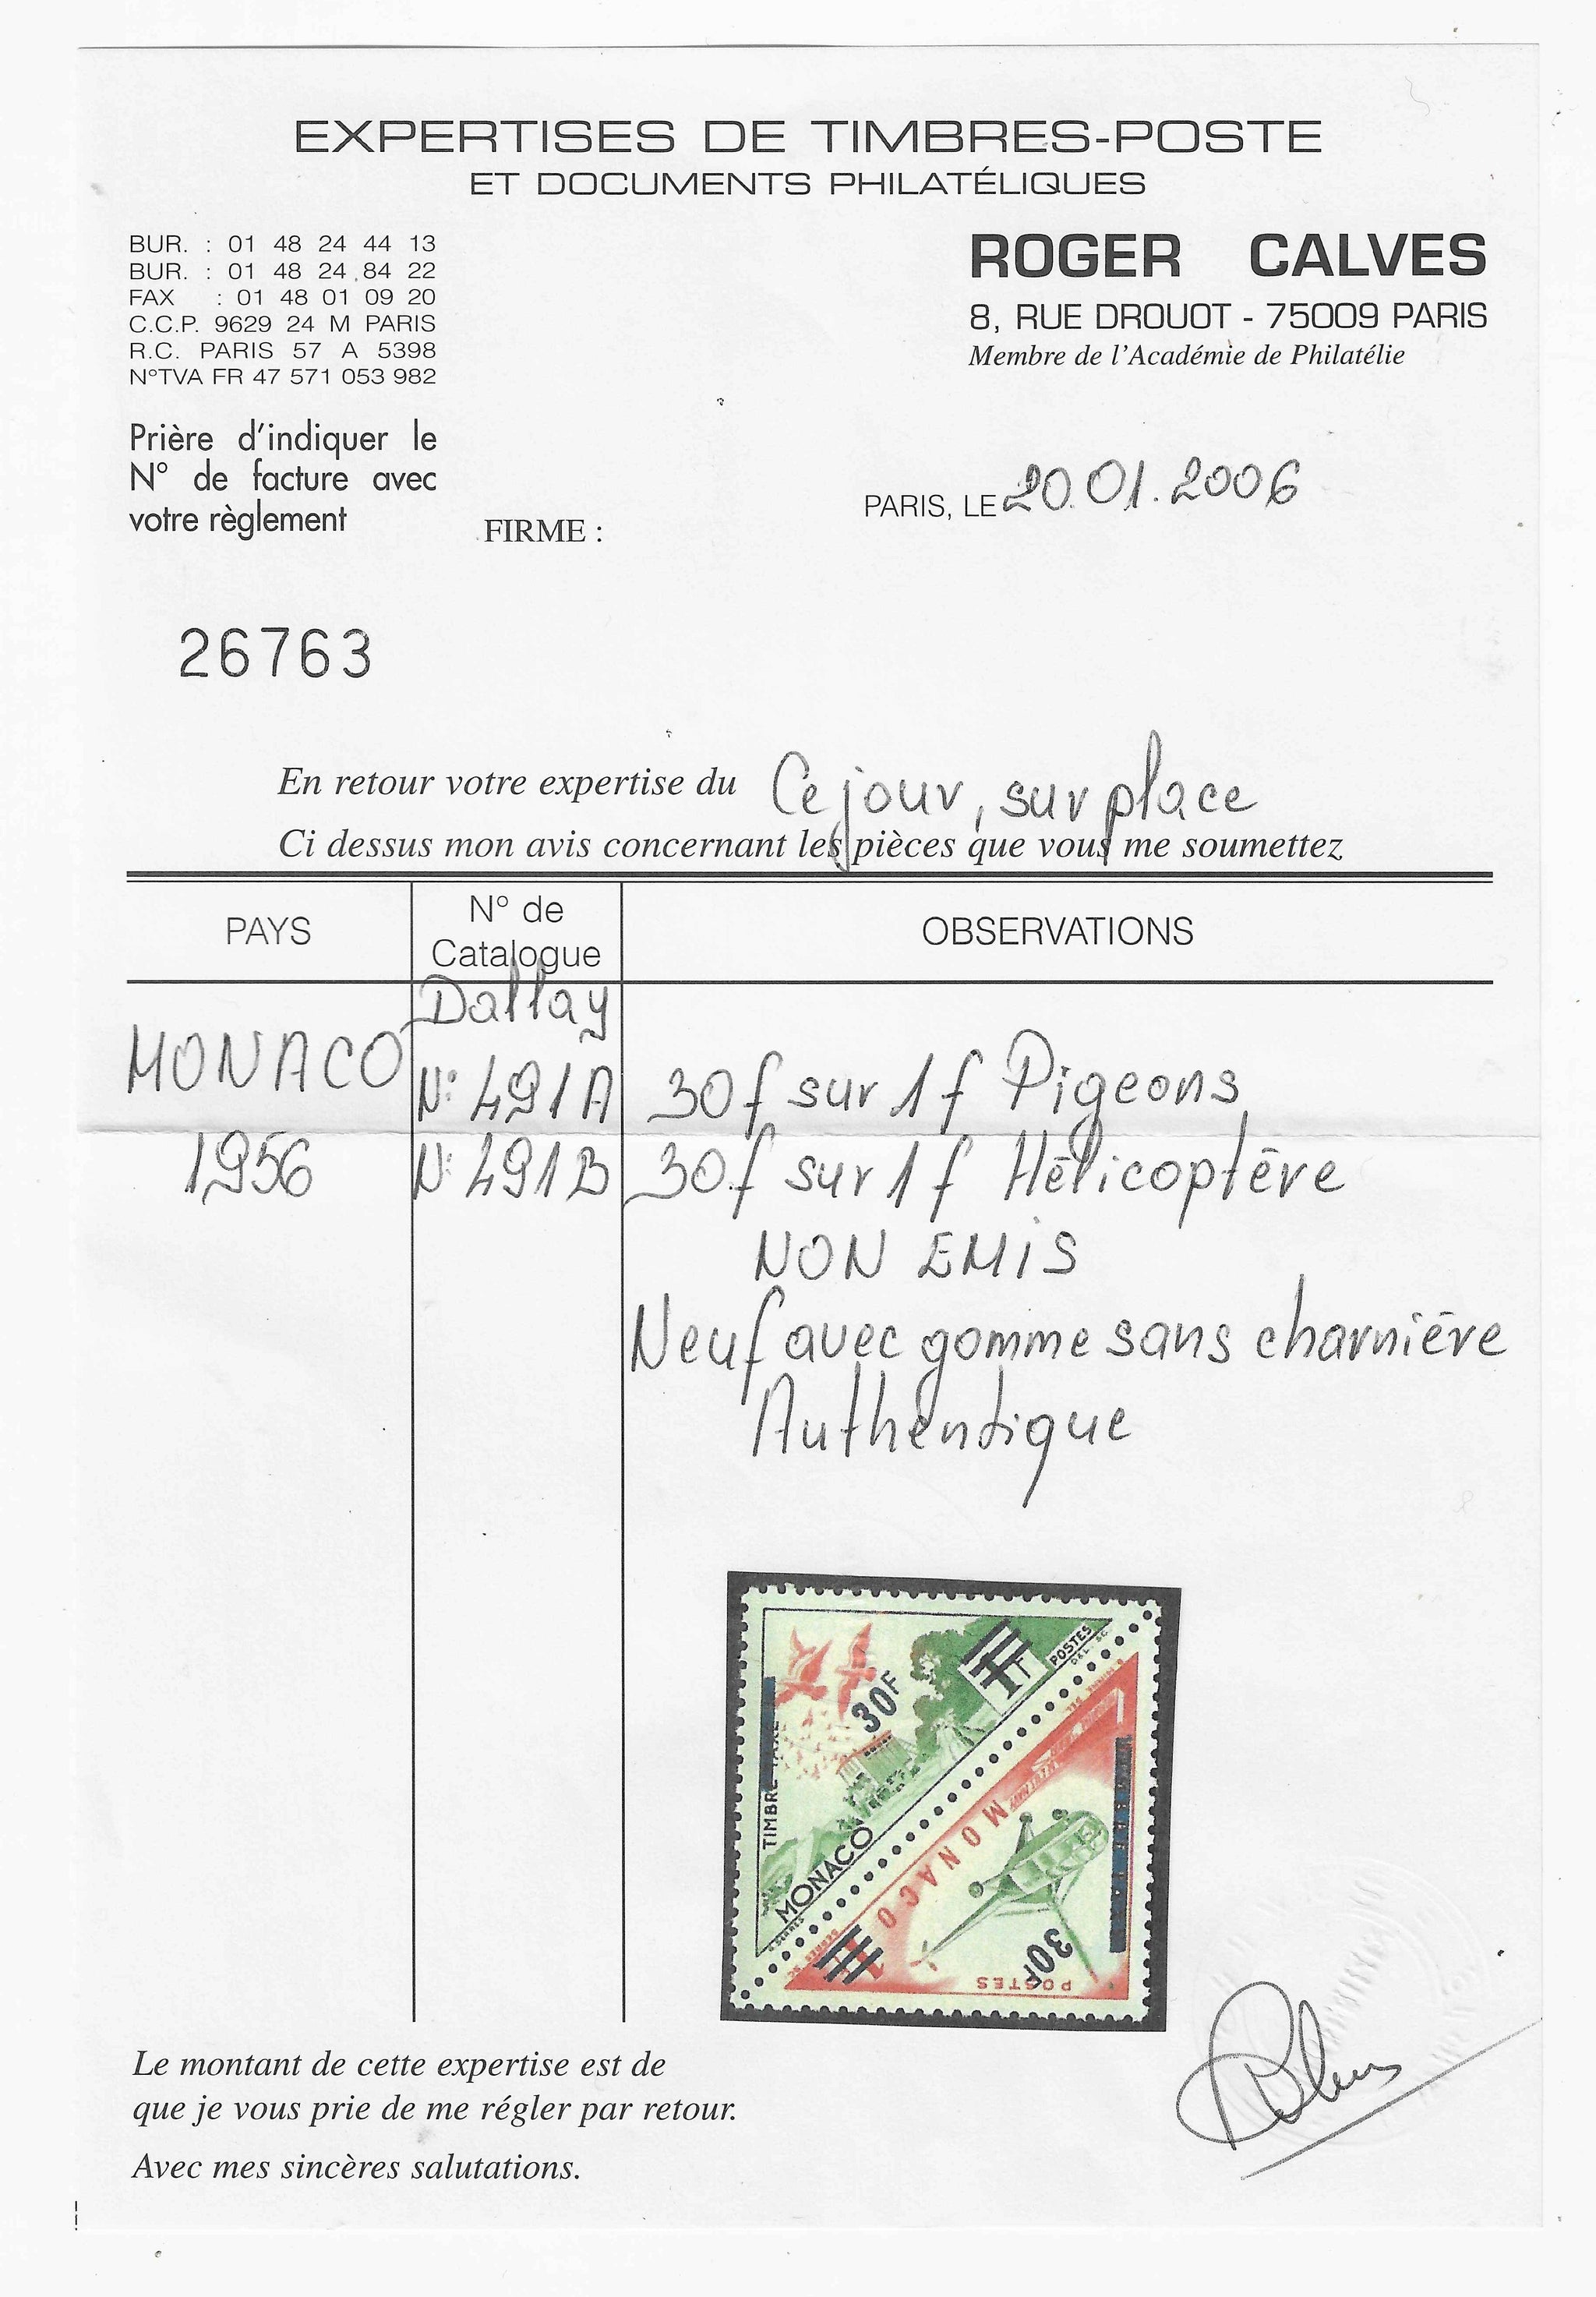 EXPERTISES DE TIMBRES-POSTE
ET DOCUMENTS PHILATÉLIQUES
BUR. : 01 48 24 44 13
BUR. : 01 48 24 84 22
FAX : 01 48 01 09 20
C.C.P. 9629 24 M PARIS
R.C. PARIS 57 A 5398
N°TVA FR 47 571 053 982
ROGER CALVES
8, RUE DROUOT - 75009 PARIS
Membre de l'Académie de Philatélie
Prière d'indiquer le
N° de facture avec
votre règlement
FIRME :
PARIS, LE 20.01.2006
26763
En retour votre expertise du Ce jour, sur place
Ci dessus mon avis concernant les pièces que vous me soumettez
PAYS
N° de
Catalogue
OBSERVATIONS
Dallay
MONACO N° 491A 30f sur 1f Pigeons
1956 N° 491B 30f sur 1f Hélicoptère
NON EMIS
Neuf avec gomme sans charnière
Authentique
TIMBRE TAXE
30F
1F
POSTES
MONACO
MONACO
30F
POSTES
Le montant de cette expertise est de
que je vous prie de me régler par retour.
Avec mes sincères salutations.